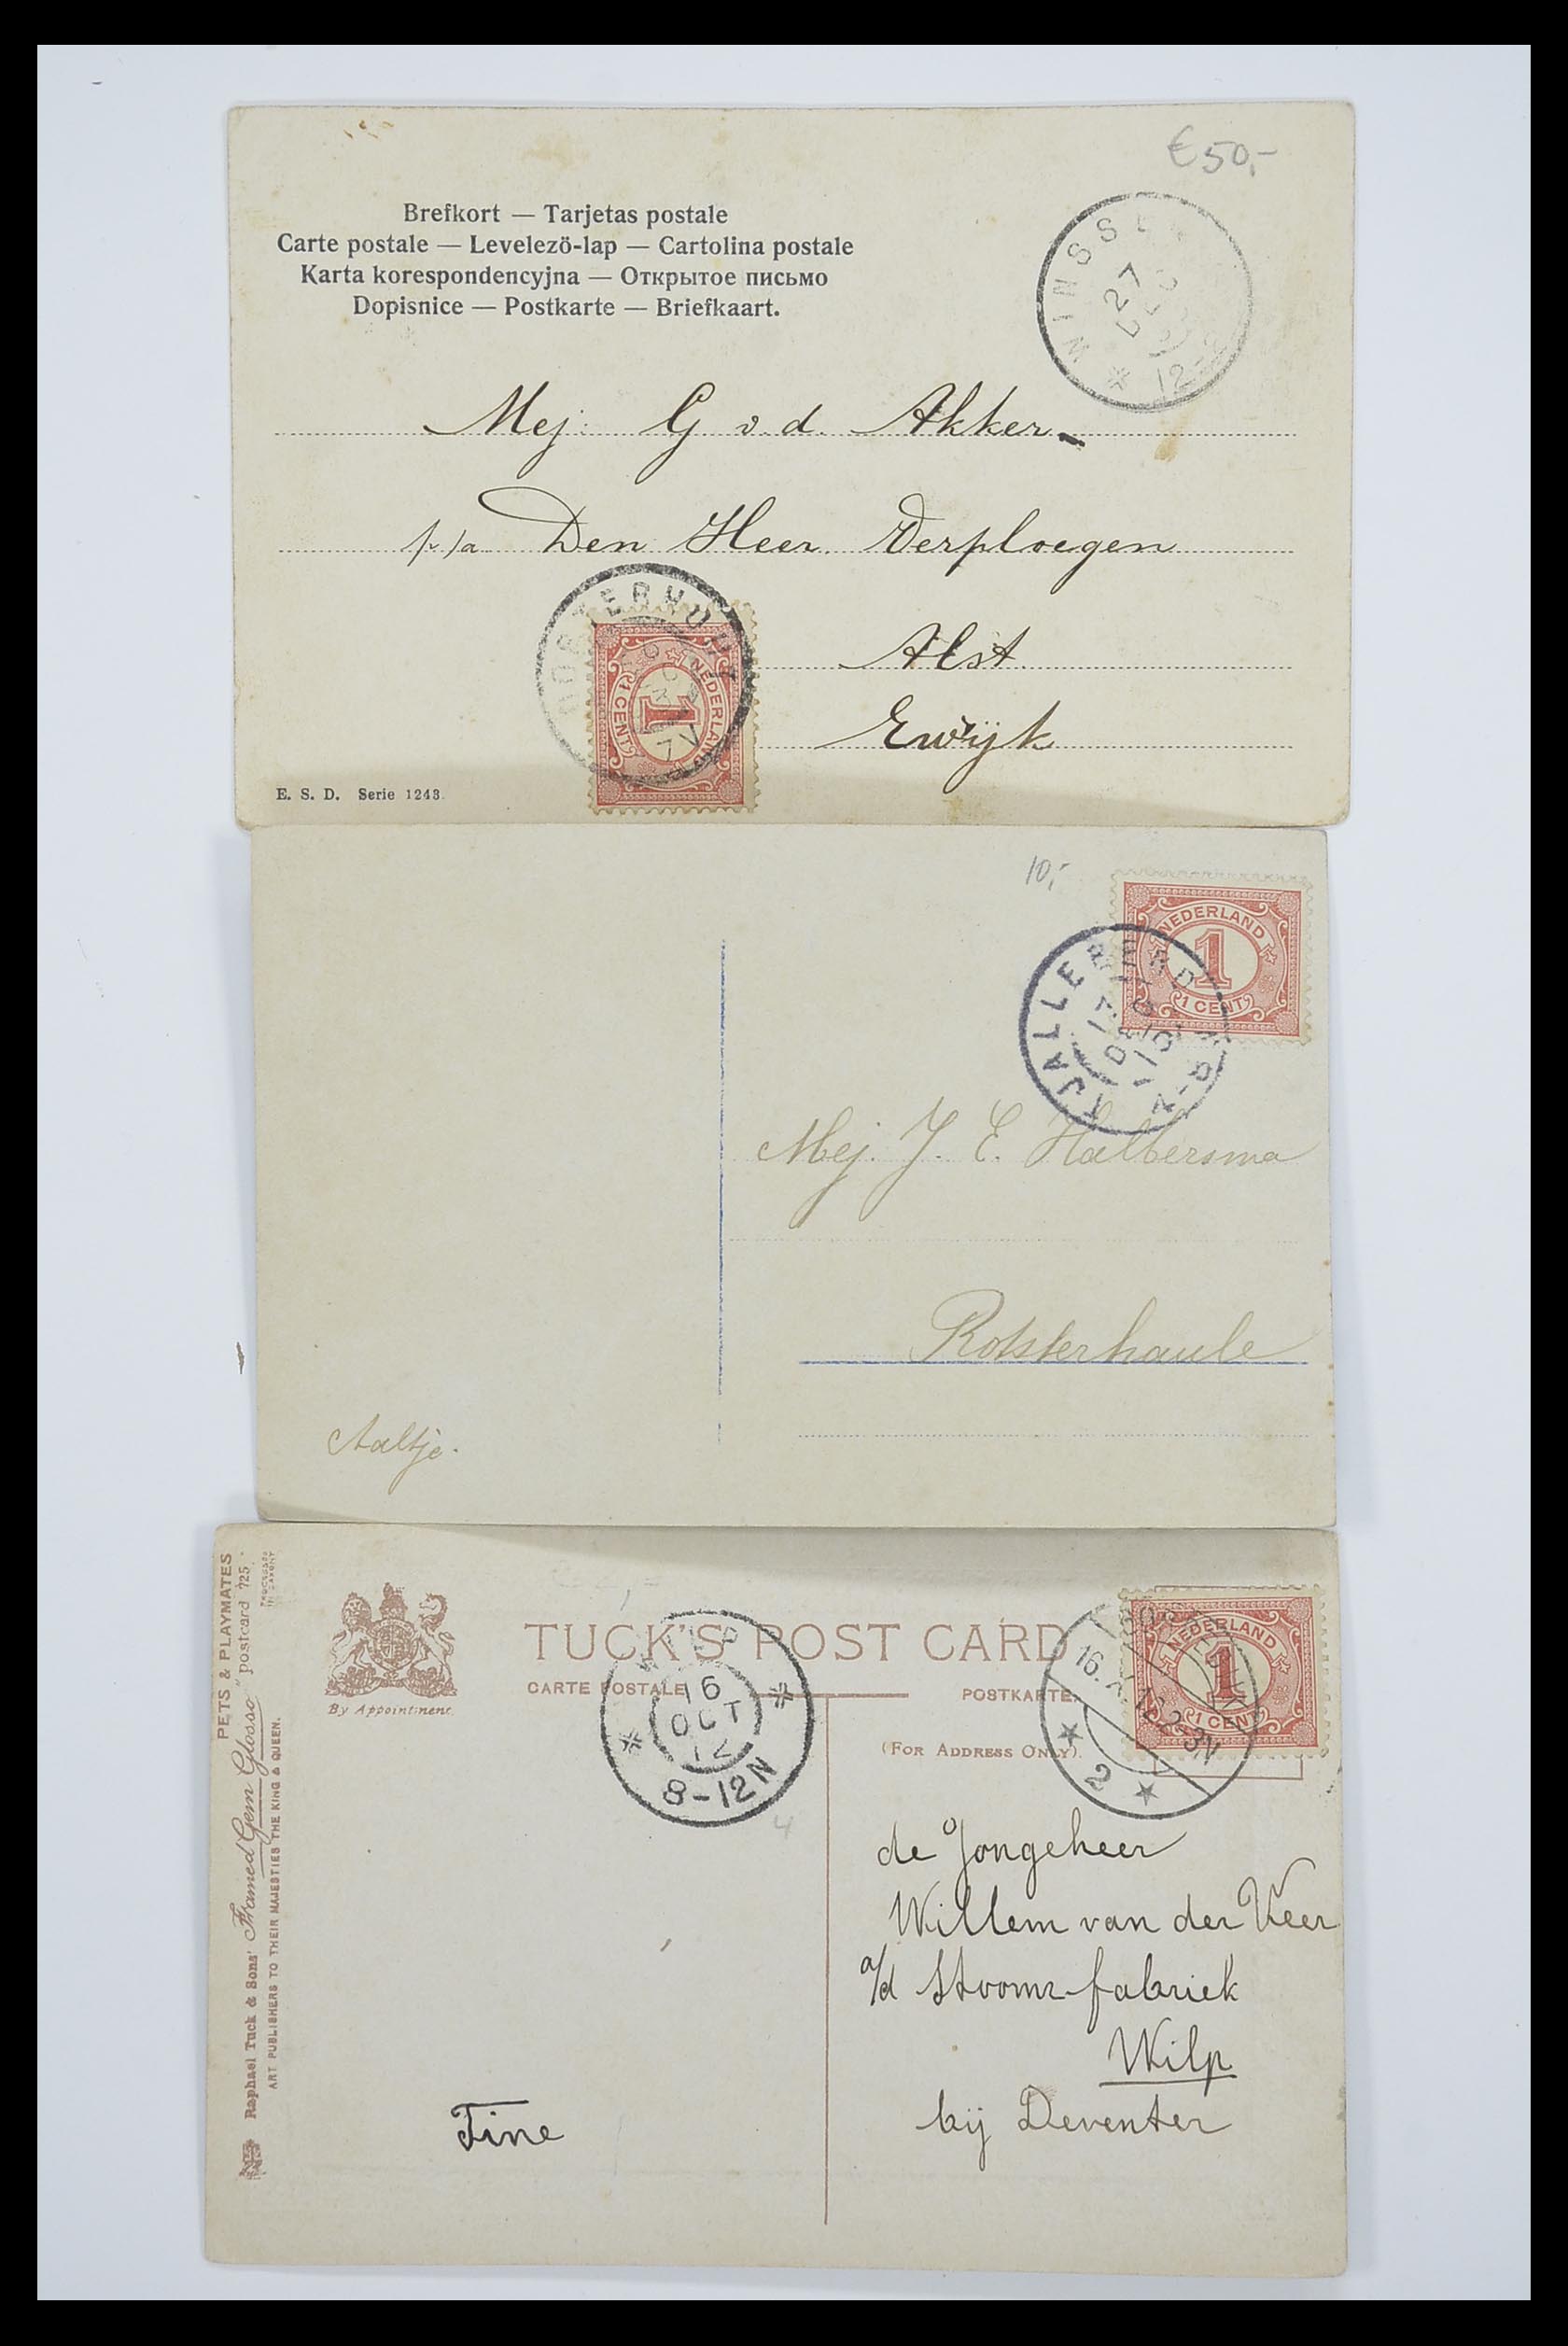 €50,-
Brefkort — Tarjetas postale
Carte postale — Levelezö-lap — Cartolina postale
Karta korespondencyjna — Открытое письмо
Dopisnice — Postkarte — Briefkaart.
WINSSEN
27 DEC
12-
Mej. G v. d. Akker
p/a Den Heer Verploegen
Alst
Ewijk
OOSTERHOUT
7V
NEDERLAND
1
1 CENT
E. S. D. Serie 1243.
10,-
NEDERLAND
1
1 CENT
TJALLEBERD
Mej. J. E. Halbersma
Rotsterhaule
Aaltje.
PETS & PLAYMATES
Raphael Tuck & Sons' "Framed Gem Glosso" postcard 725.
ART PUBLISHERS TO THEIR MAJESTIES THE KING & QUEEN.
By Appointment.
TUCK'S POST CARD
CARTE POSTALE
POSTKARTE.
(FOR ADDRESS ONLY).
16
OCT
12
8-12N
4
16.X.12.2-3N
2
NEDERLAND
1
1 CENT
de Jongeheer
Willem van der Veer
a/d Stoom-fabriek
Wilp
bij Deventer
Tine